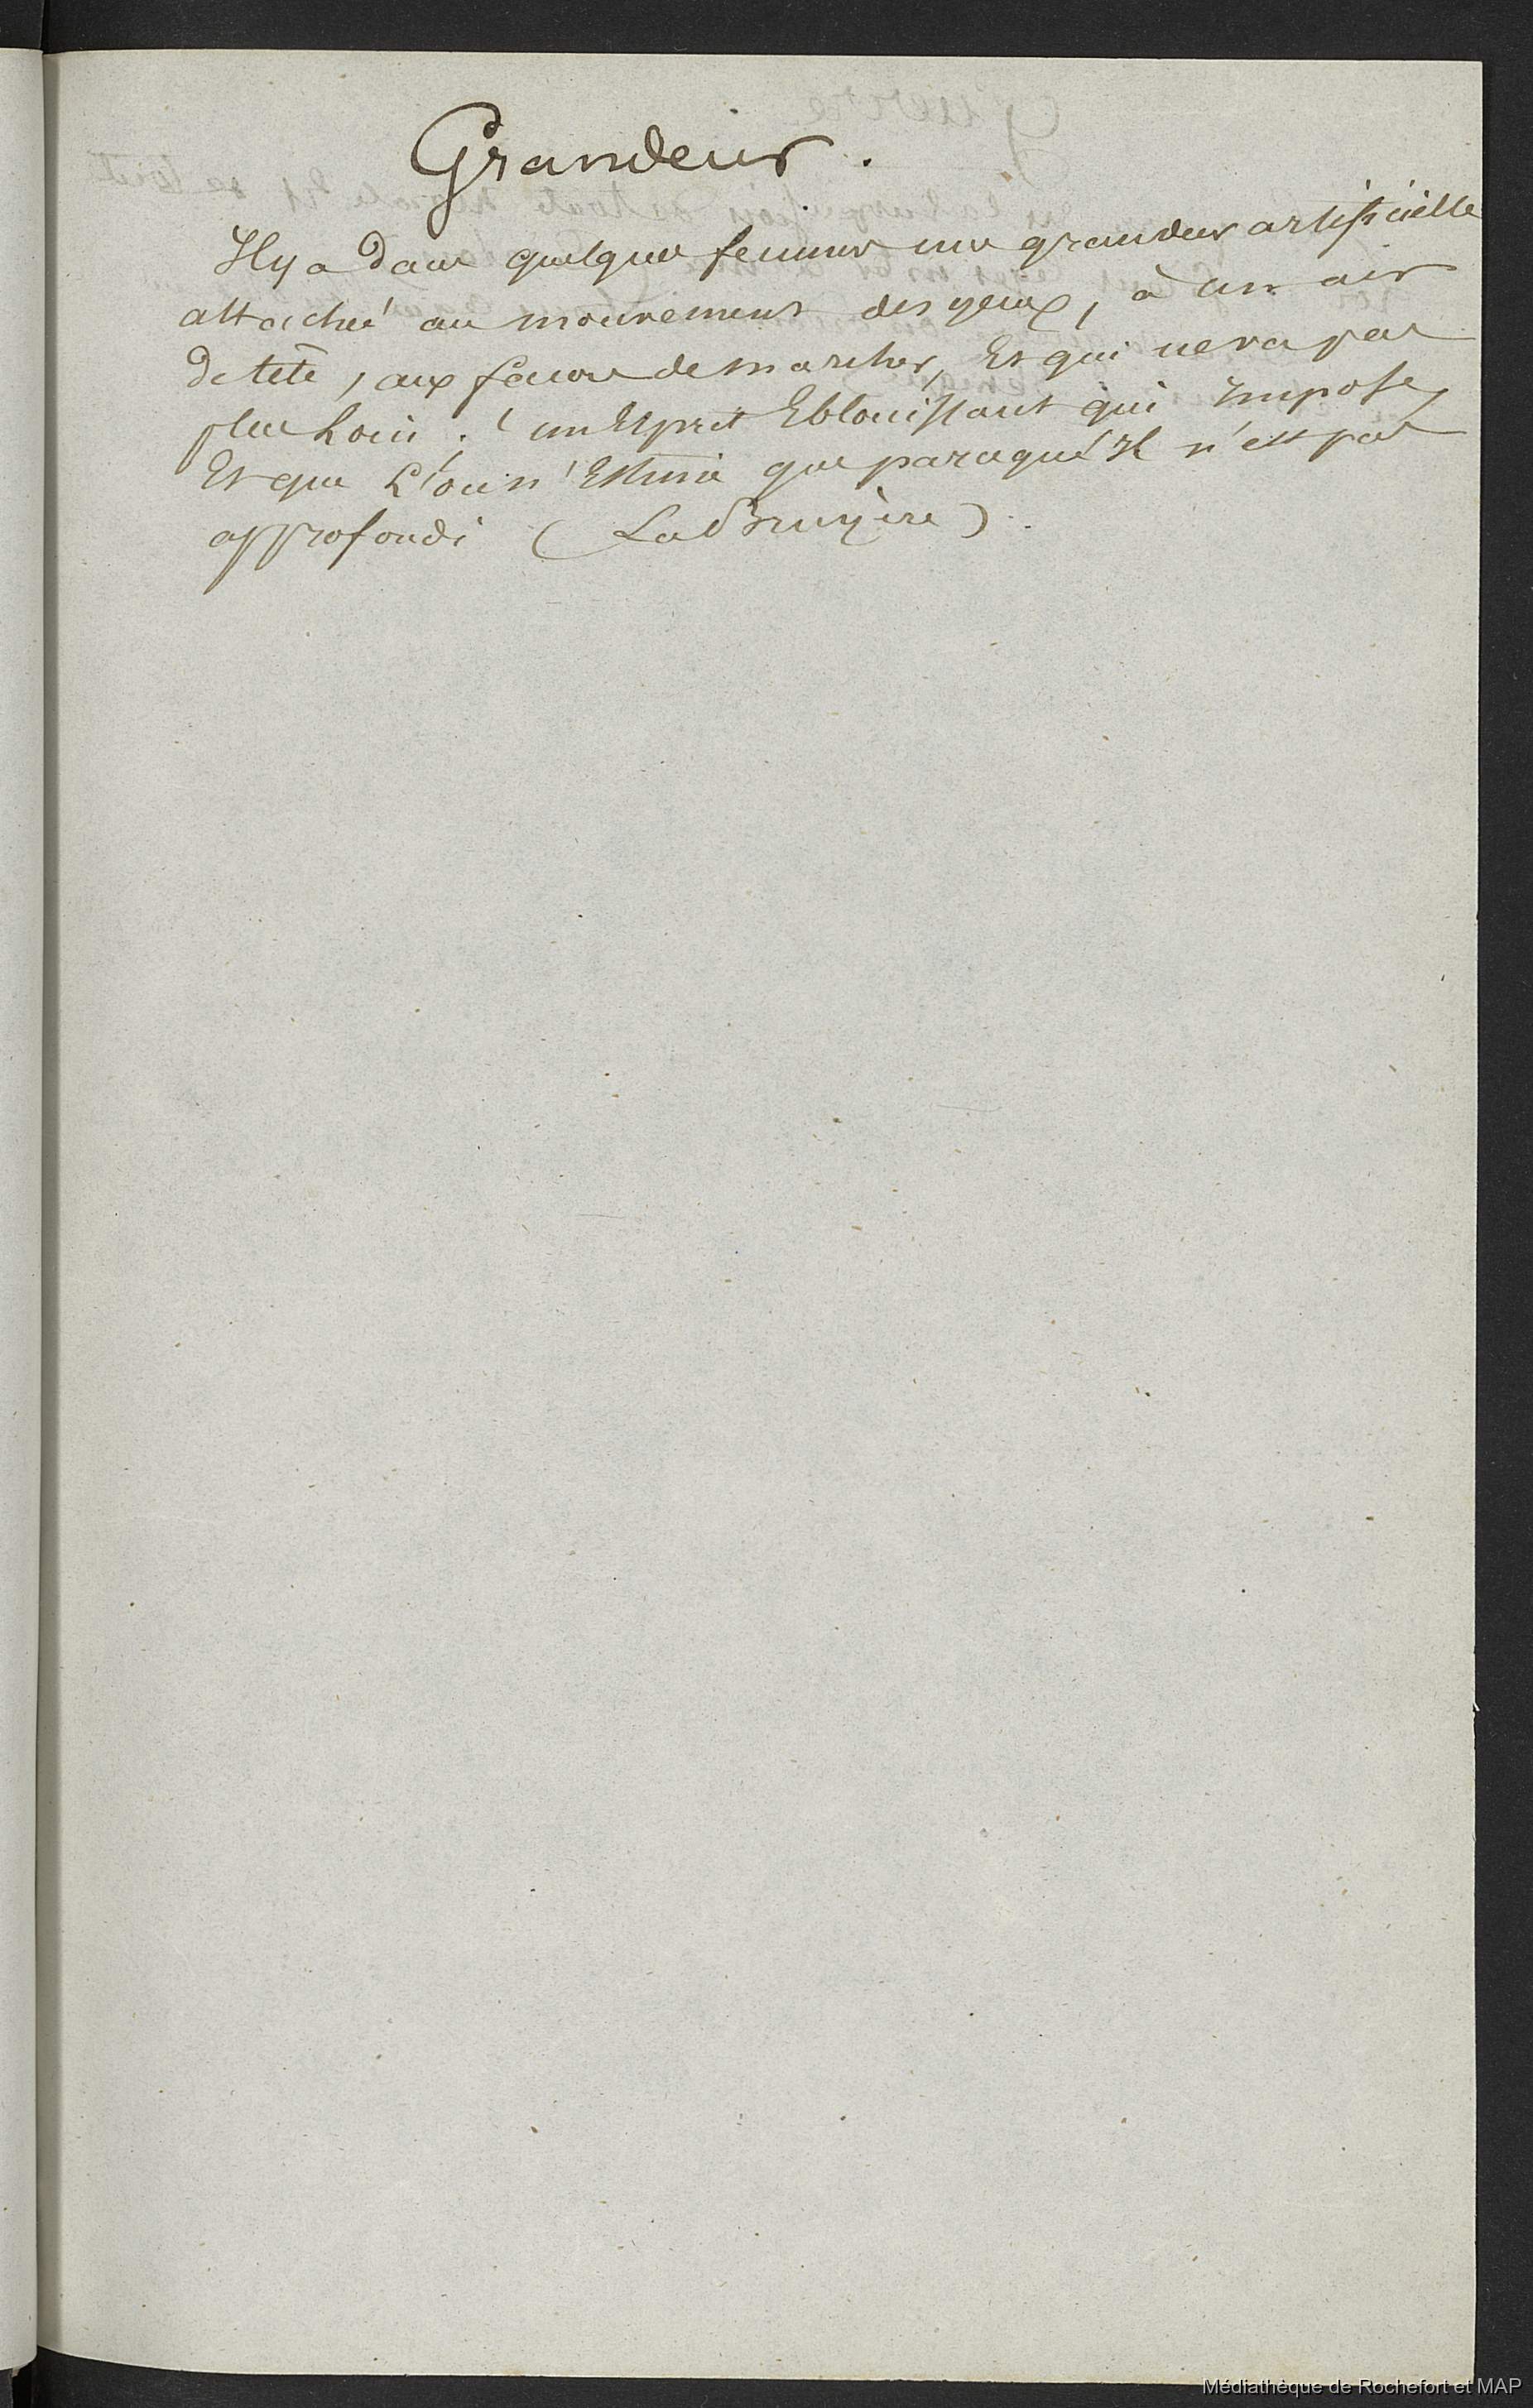 Grandeur.
Il y a dans quelques femmes une grandeur artificielle
attaché au mouvement des yeux, à un air
de tête, aux facons de marcher, Et qui ne va pas
plus Loin. un Esprit Eblouissant qui impose,
Et que L'on n'Estime que parcequ'il n'est pas
approfondi (La Bruyère).
Médiathèque de Rochefort et MAP